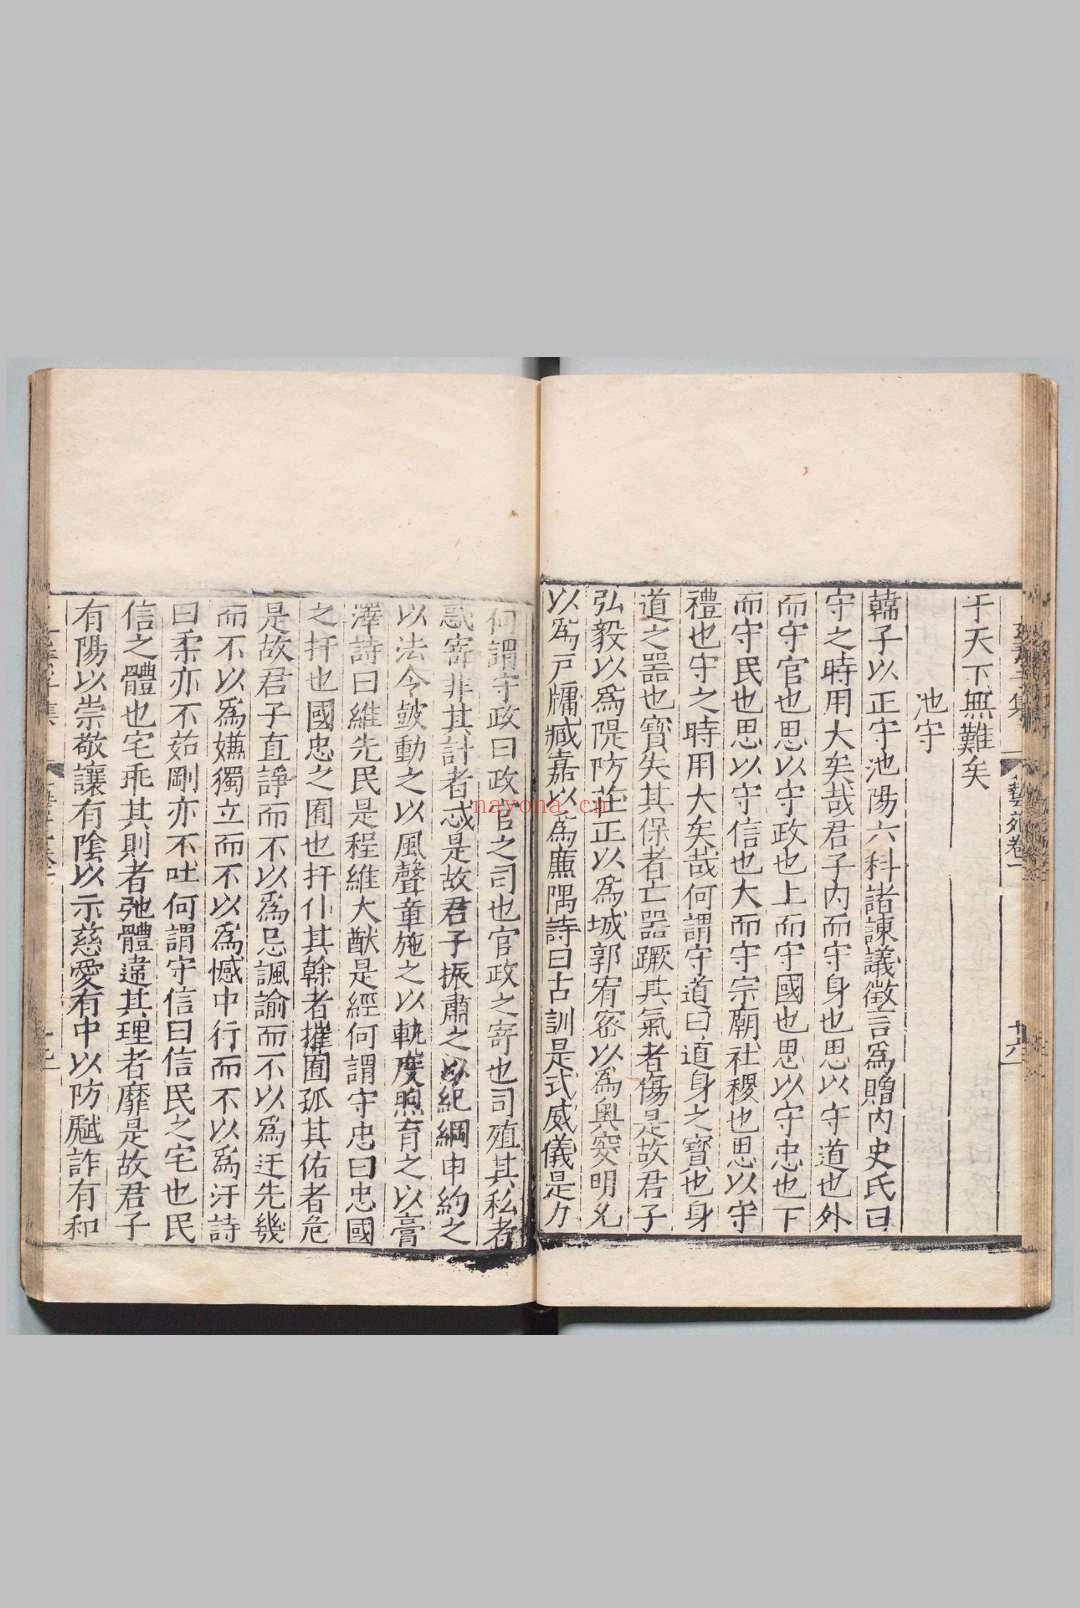 于天下無難矣
池守
韓子以正守池陽六科諸諌議徵言爲贈內史氏曰
守之時用大矣哉君子內而守身也思以守道也外
而守官也思以守政也上而守國也思以守忠也下
而守民也思以守信也大而守宗廟社稷也思以守
禮也守之時用大矣哉何謂守道曰道身之寶也身
道之噐也寳失其保者亡噐蹶其氣者傷是故君子
弘毅以爲隄防莊正以爲城郭宥宻以爲奥窔明允
以爲戸牖臧嘉以爲㢘隅詩曰古訓是式威儀是力
何謂守政曰政官之司也官政之寄也司殖其私者
忒寄非其計者惑是故君子振肅之以紀綱申約之
以法令皷動之以風聲章施之以軌度煦育之以膏
澤詩曰維先民是程維大猷是經何謂守忠曰忠國
之扞也國忠之囿也扞仆其榦者摧囿孤其佑者危
是故君子直諍而不以爲忌諷諭而不以爲迂先幾
而不以爲嫌獨立而不以爲憾中行而不以爲汙詩
曰柔亦不茹剛亦不吐何謂守信曰信民之宅也民
信之體也宅乖其則者弛體違其理者靡是故君子
有陽以崇敬讓有陰以示慈愛有中以防驕詐有和
藝苑卷一
十六
nayona.cn